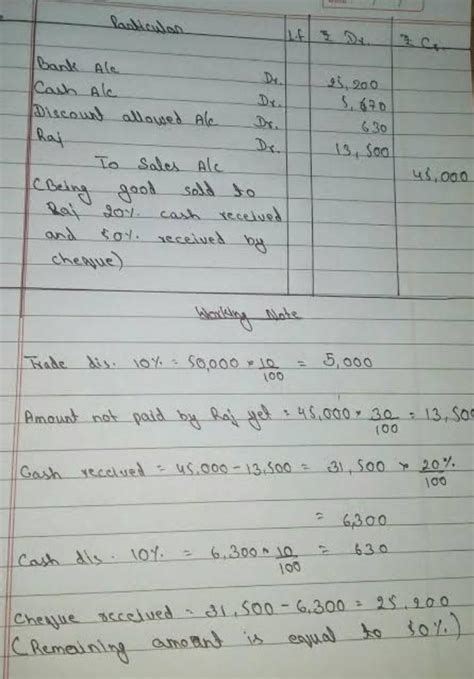 Particular L.f ₹ Dr. ₹ Cr.
Bank A/c Dr. 25,200
Cash A/c Dr. 5,670
Discount allowed A/c Dr. 630
Raj Dr. 13,500
To Sales A/c 45,000
(Being good sold to
Raj 20% cash received
and 50% received by
cheque)
Working Note
Trade dis. 10% = 50,000 × 10/100 = 5,000
Amount not paid by Raj yet = 45,000 × 30/100 = 13,500
Cash received = 45,000 – 13,500 = 31,500 × 20%/100
= 6,300
Cash dis. 10% = 6,300 × 10/100 = 630
Cheque received = 31,500 – 6,300 = 25,200
(Remaining amount is equal to 50%)